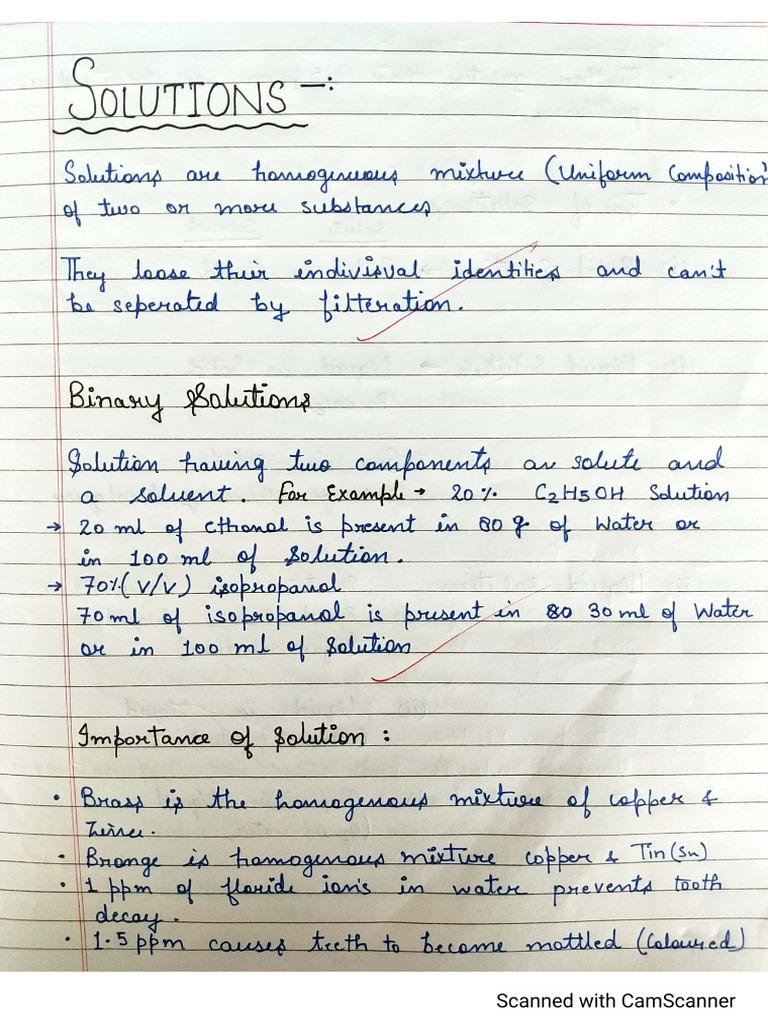 SOLUTIONS -:
Solutions are homogenuous mixture (Uniform Composition)
of two or more substances
They loose their indivisual identities and can't
be seperated by filteration.
Binary Solutions
Solution having two components as solute and
a solvent. For Example → 20% C2H5OH Solution
→ 20 ml of Ethanol is present in 80 g of Water or
in 100 ml of Solution.
→ 70% (V/V) isopropanol
70 ml of isopropanol is present in 80 30 ml of Water
or in 100 ml of Solution
Importance of Solution :
• Brass is the homogenous mixture of copper &
Zinc.
• Bronze is homogenous mixture copper & Tin (Sn)
• 1 ppm of floride ion's in water prevents tooth
decay.
• 1.5 ppm causes teeth to become mottled (Coloured)
Scanned with CamScanner